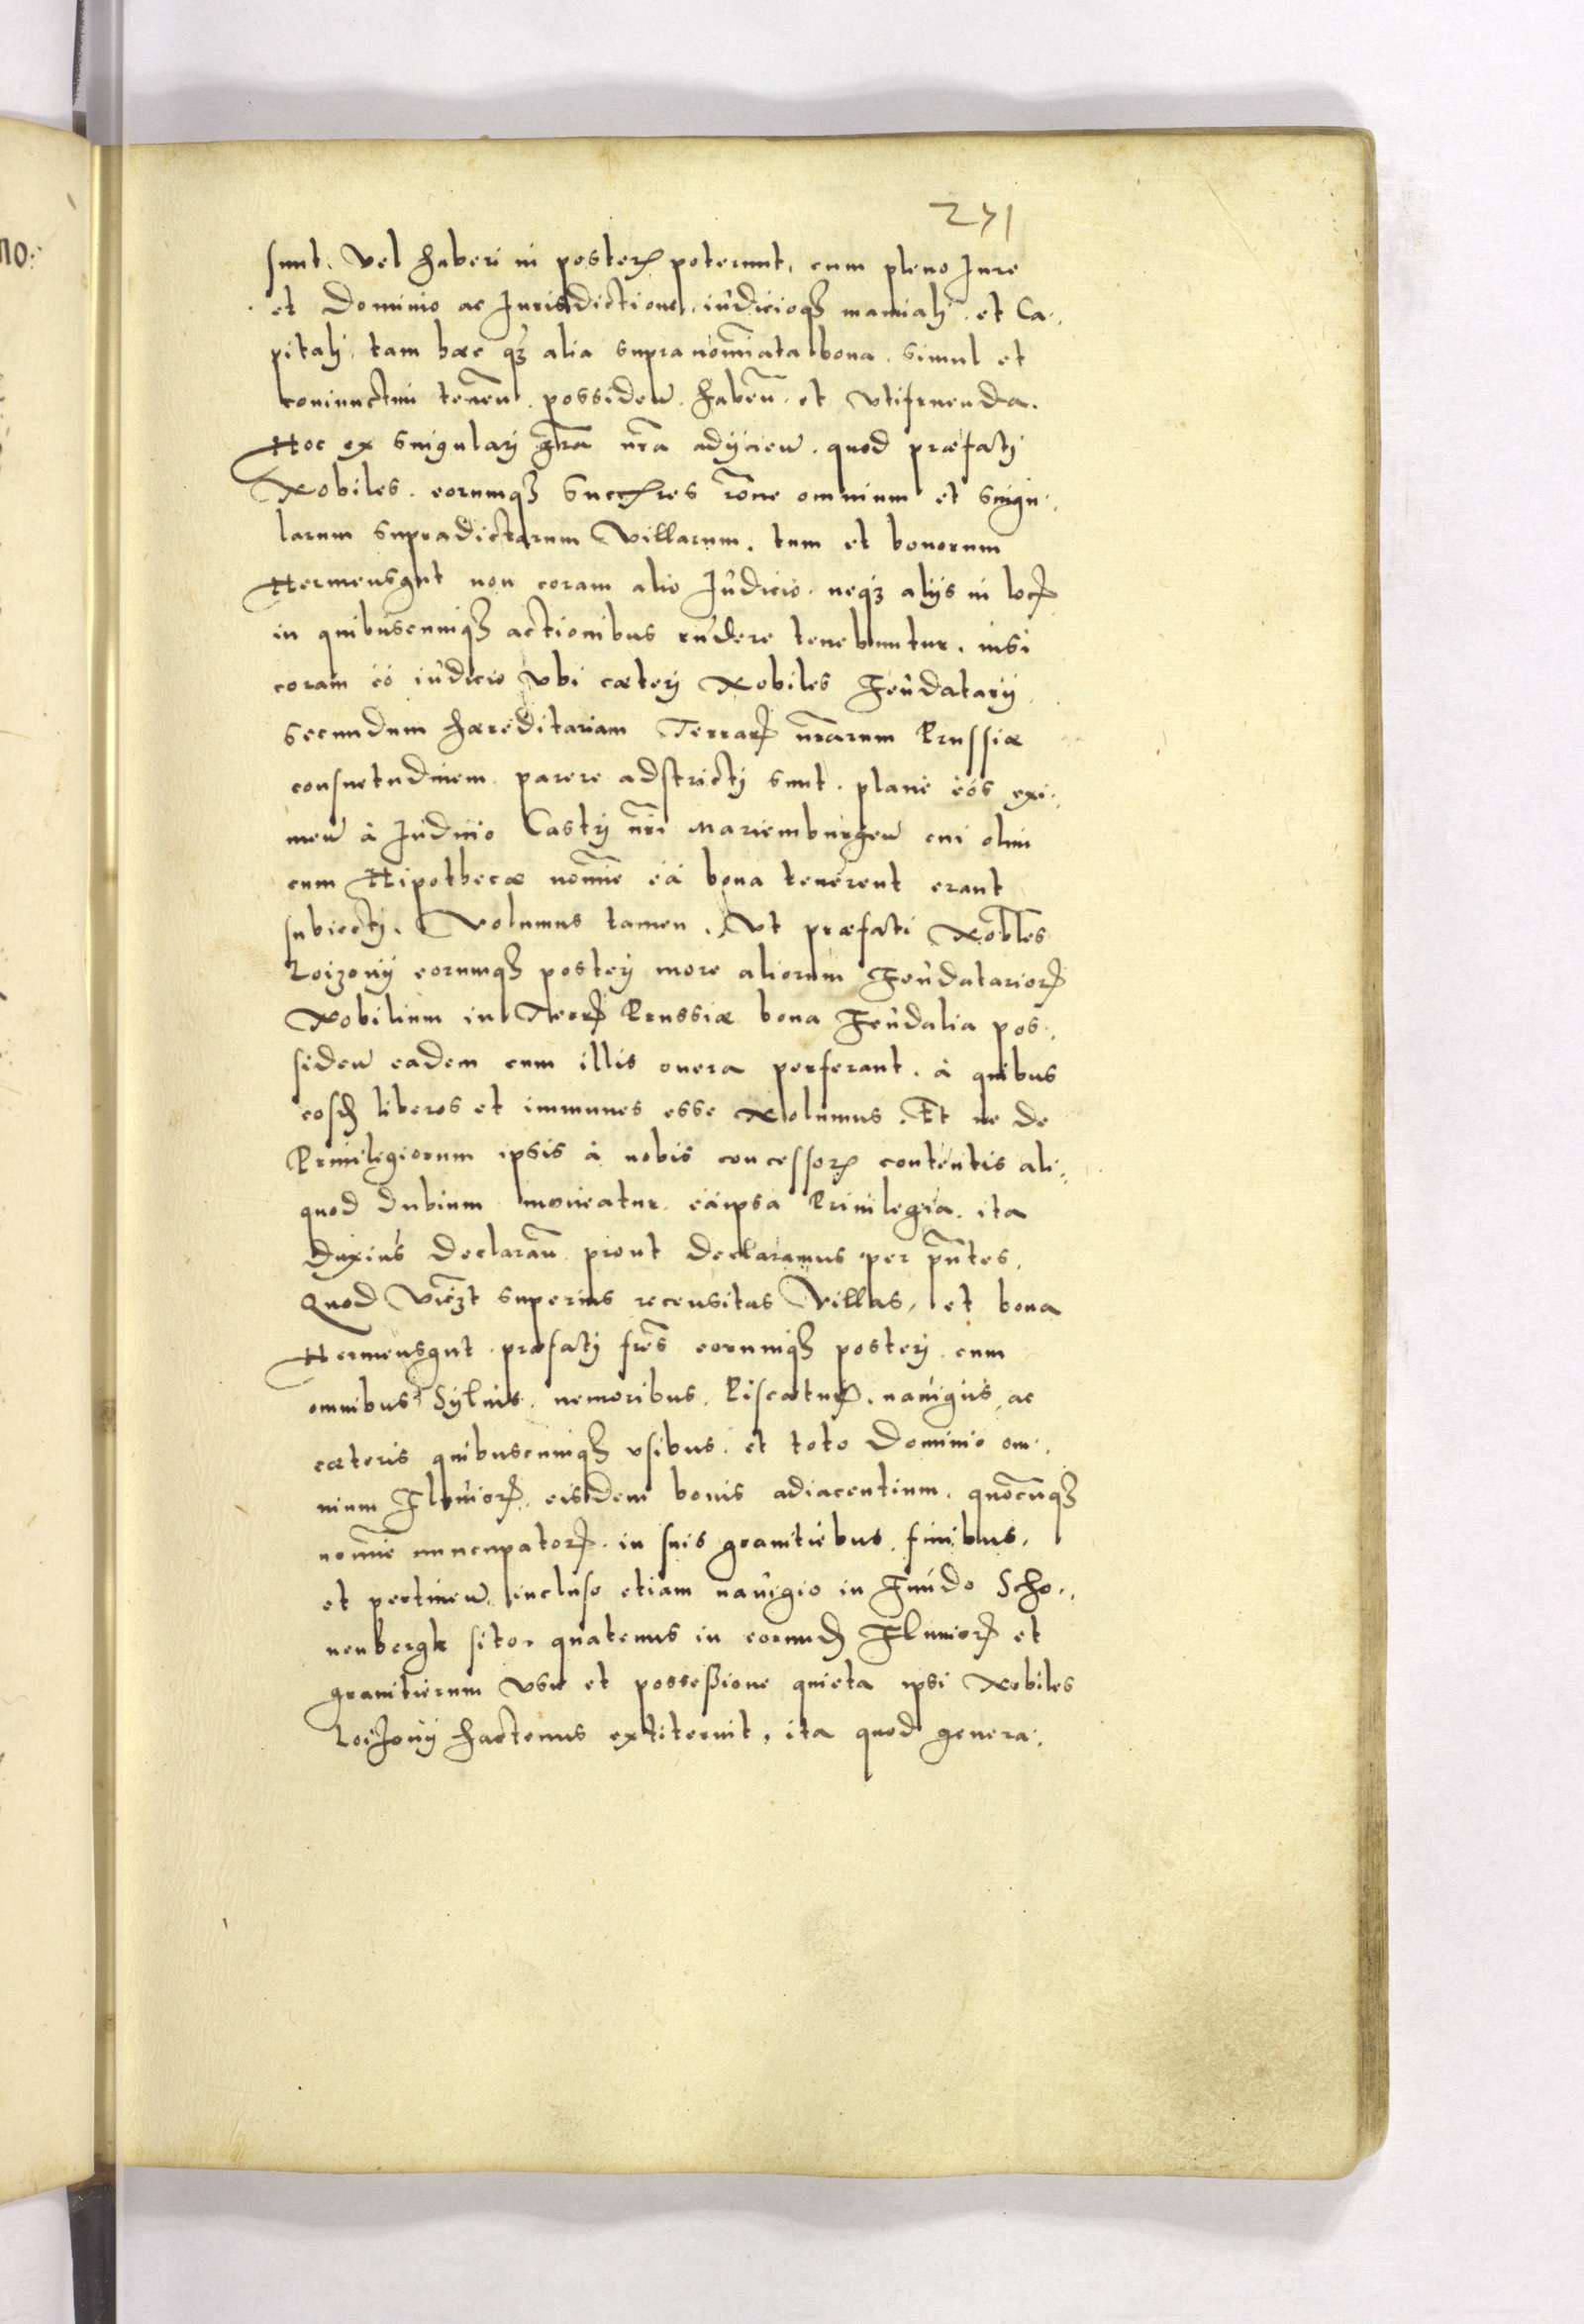 271
no:
sunt. Vel haberi in posterũ poterunt, cum pleno Jure
et Dominio ac Jurisdictione, iûdicioqʒ manuali et Ca-,
pitali tam hæc qʒ alia supra nom̃iata bona. simul et
coniunctim teneñ. possideñ. habeñ. et Vtifruenda.
Hoc ex singulari gr̃a nr̃a adijcieñ. quod præfati
Nobiles. eorumqʒ Successores rõne omnium et singu-,
larum supradictarum Villarum. tum et bonorum
Hermensgut non coram alio Jûdicio. neqʒ alijs in locis
in quibuscumqʒ actionibus rñdere tenebuntur. nisi
coram eó iûdicio Vbi cæteri Nobiles Feûdatarij
secundum hæreditariam Terrarũ nr̃arum Prussiæ
consuetudinem parere adstricti sunt. planè eós exi-,
meñ à Jûdicio Castri nr̃i Mariemburgeñ cui olim
cum Hipothecæ nom̃ie eá bona tenérent erant
subiecti. Volumus tamen. Vt præfati Nobl̃es
Loizonij eorumqʒ posteri more aliorum Feûdatariorũ
Nobilium in Terris Prussiæ bona Feûdalia pos-,
sideñ eadem cum illis onera perferant. à quibus
eosdem liberos et immunes esse Nolumus. Et ne de
Priuilegiorum ipsis à nobis concessorũ contentis ali-,
quod dubium moueatur. eáipsa Priuilegia. ita
duximus declarañ prout declaramus per pñtes.
Quod Videlʒt superius recensitas Villas, et bona
Hermensgut præfati fr̃es eorumqʒ posteri cum
omnibus Syluis. nemoribus. Piscaturis. nauigijs, ac
cæteris quibuscumqʒ vsibus. et toto Dominio om-,
nium Fluuiorũ eisdem bonis adiacentium. quocũqʒ
nom̃ie nuncupatorũ. in suis granitiebus, finibus,
et pertineñ. incluso etiam nauigio in Fundo Scho-,
nenbergk sito. quatenus in eorundem Fluuiorũ et
granitierum Vsu et possessione quieta ipsi Nobiles
Loizonij hactenus extiterunt, ita quod genera-,